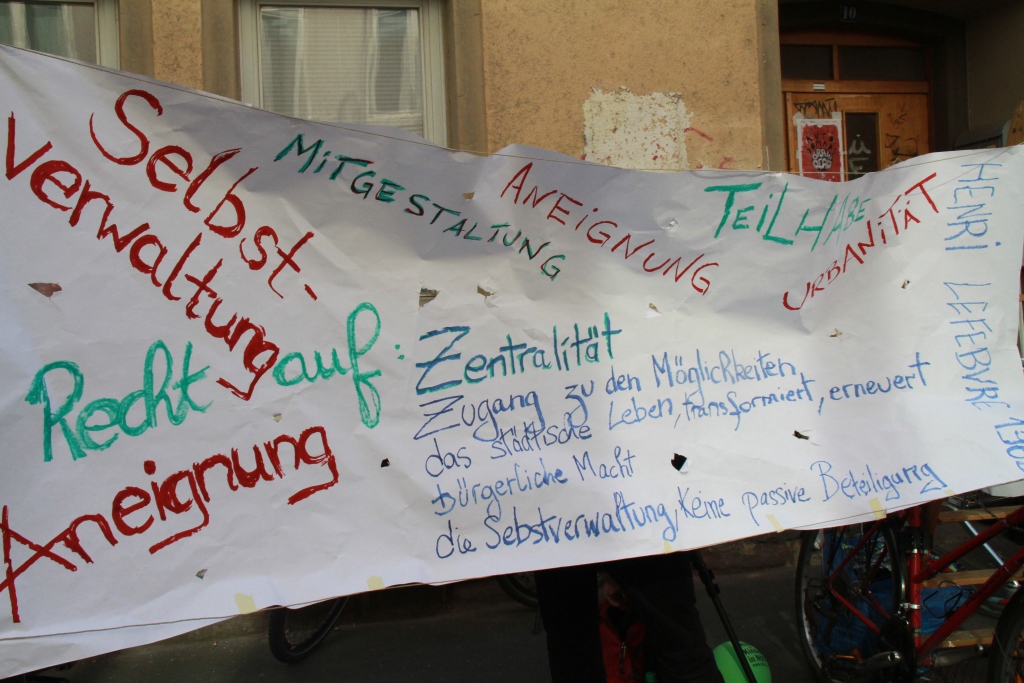 10
Selbst-
verwaltung
MITGESTALTUNG
ANEIGNUNG
TEILHABE
URBANITÄT
HENRI LEFEBVRE
Recht auf:
Aneignung
Zentralität
Zugang zu den Möglichkeiten,
das städtische Leben, transformiert, erneuert
Bürgerliche Macht
die Sebstverwaltung, Keine passive Beteiligung